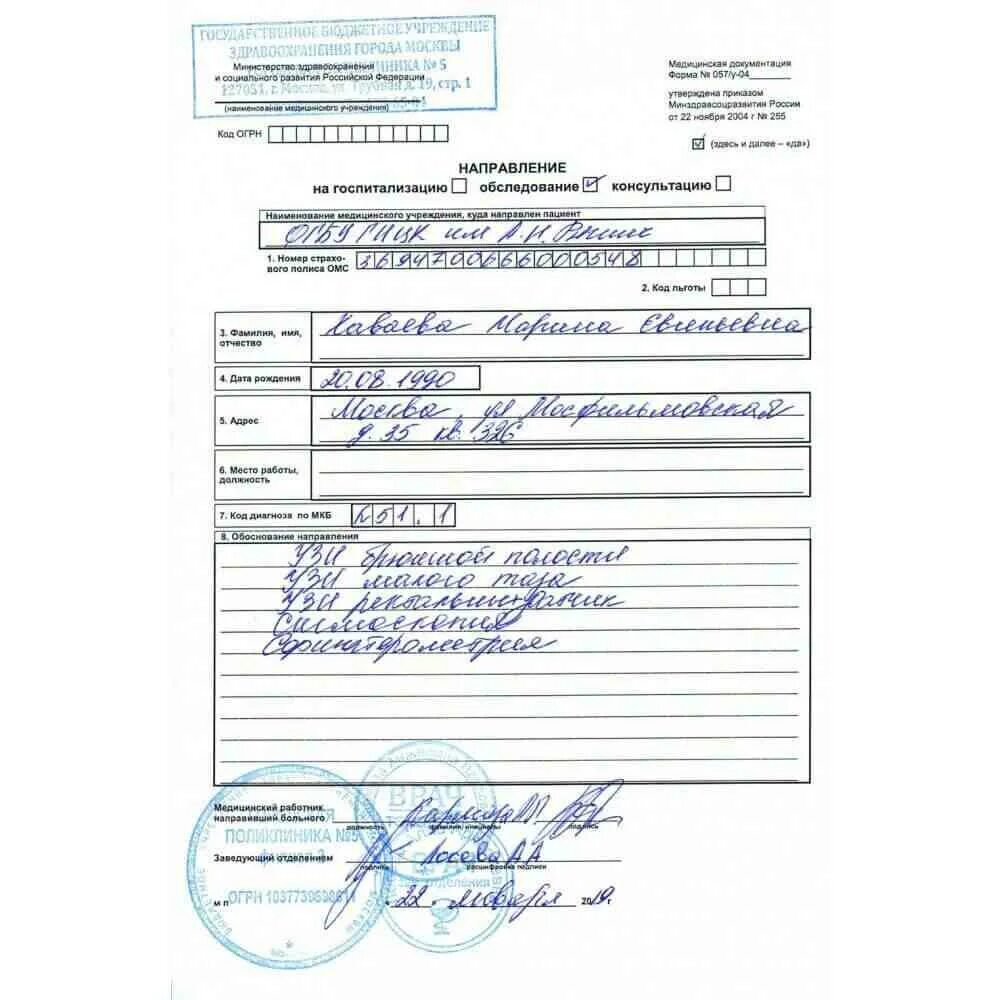 ГОСУДАРСТВЕННОЕ БЮДЖЕТНОЕ УЧРЕЖДЕНИЕ
ЗДРАВООХРАНЕНИЯ ГОРОДА МОСКВЫ
Министерство здравоохранения
и социального развития Российской Федерации
ПОЛИКЛИНИКА № 5
127051, г. Москва, ул. Трубная д. 19, стр. 1
(наименование медицинского учреждения)
Код ОГРН
Медицинская документация
Форма № 057/у-04
утверждена приказом
Минздравсоцразвития России
от 22 ноября 2004 г № 255
(здесь и далее – «да»)
НАПРАВЛЕНИЕ
на госпитализацию обследование консультацию
Наименование медицинского учреждения, куда направлен пациент
ФГБУ ГНЦК им А.Н.
1. Номер страхо-
вого полиса ОМС 3694700666000548
2. Код льготы
3. Фамилия, имя,
отчество
Хаваева Марина Евгеньевна
4. Дата рождения 20.08.1990
5. Адрес
Москва, ул Мосфильмовская
д. 35 кв. 326
6. Место работы,
должность
7. Код диагноза по МКБ К51.1
8. Обоснование направления
УЗИ брюшной полости
УЗИ малого таза
УЗИ ректальным датчик
Сигмоскопия
Сфинктерометрия
Медицинский работник
направивший больного
должность фамилия инициалы подпись
ВРАЧ
Заведующий отделением Лосева АА
подпись расшифровка подписи
ПОЛИКЛИНИКА №5
филиал
ОГРН
м п 22 января 2019г